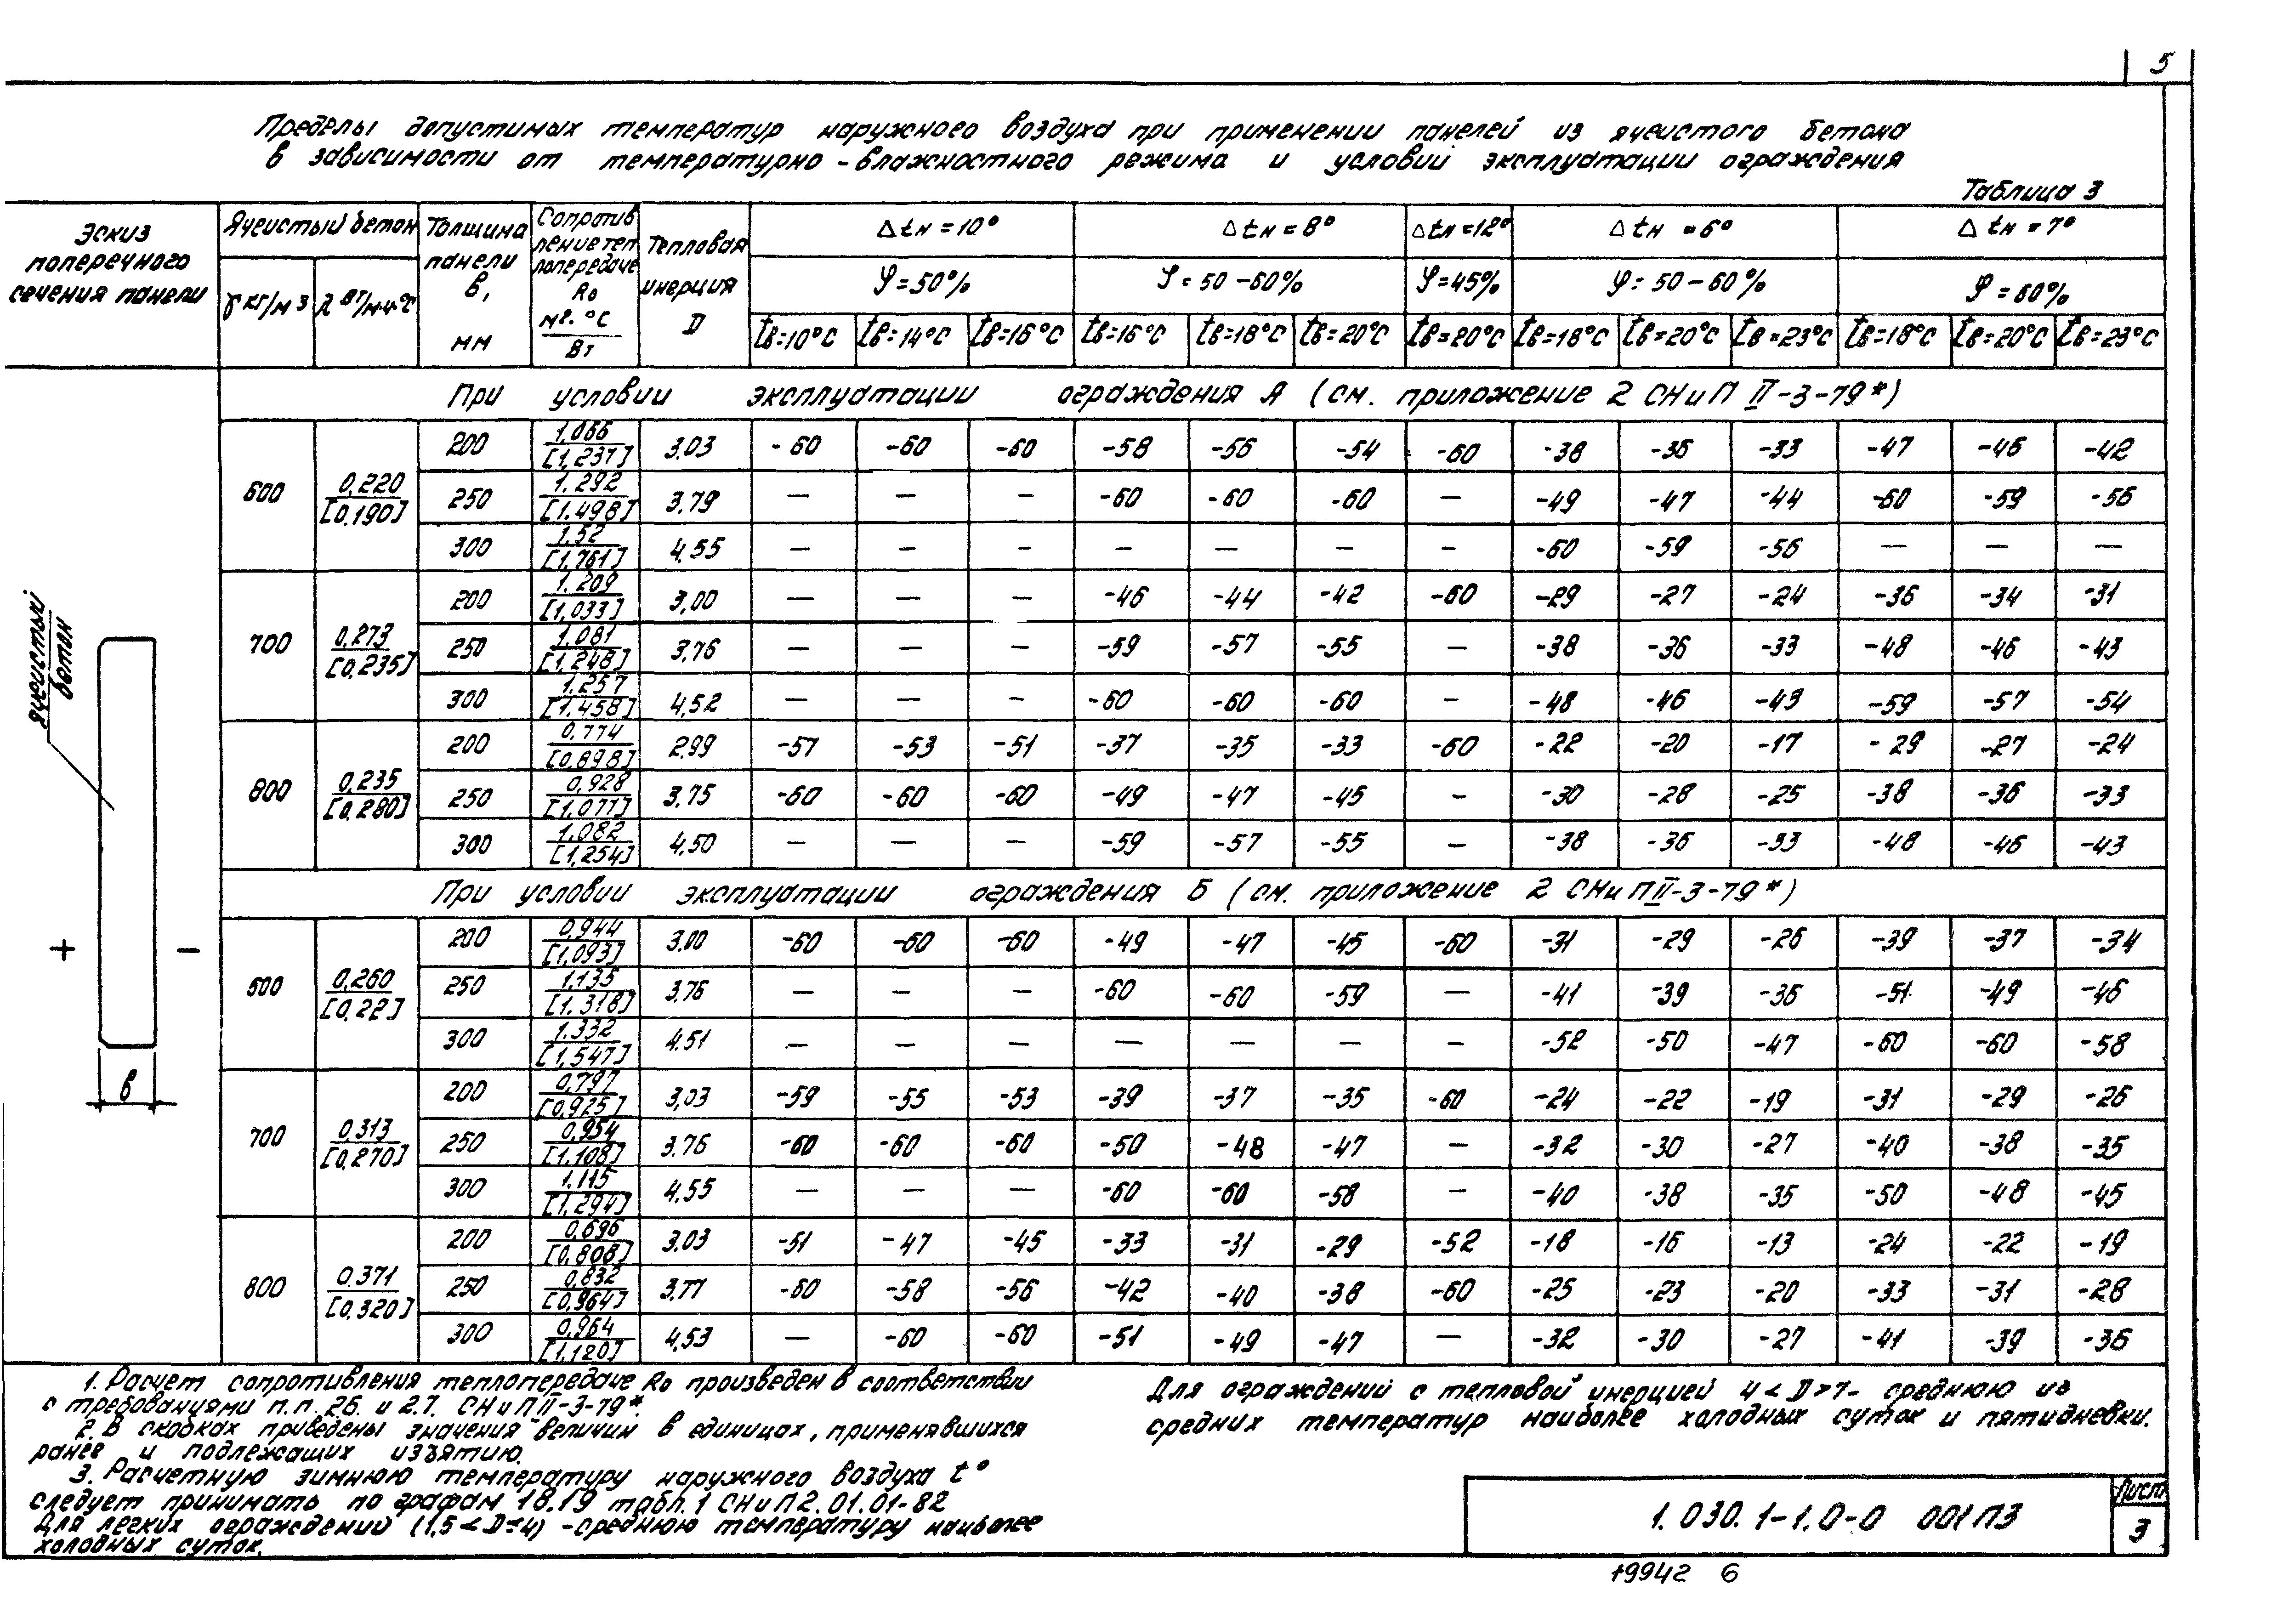 5
Пределы допустимых температур наружного воздуха при применении панелей из ячеистого бетона
в зависимости от температурно-влажностного режима и условий эксплуатации ограждения
Таблица 3
Эскиз поперечного сечения панели
Ячеистый бетон
γ кг/м3
λ Вт/м·ч·°С
Толщина панели в, мм
Сопротив ление теп лопередаче Rо м². °С / Вт
Тепловая инерция D
Δtн = 10°
Δtн = 8°
Δtн = 12°
Δtн = 6°
Δtн = 7°
φ = 50%
φ = 50 - 60%
φ = 45%
φ = 50 - 60%
φ = 60%
tв=10°С tв=14°С tв=16°С tв=16°С tв=18°С tв=20°С tв=20°С tв=18°С tв=20°С tв=23°С tв=18°С tв=20°С tв=23°С
При условии эксплуатации ограждения А (см. приложение 2 СНиП II-3-79*)
600 0,220 [0.190]
200 1,066 [1,237] 3,03 -60 -60 -60 -58 -56 -54 -60 -38 -36 -33 -47 -45 -42
250 1.292 [1.498] 3,79 — — — -60 -60 -60 — -49 -47 -44 -60 -59 -56
300 1.52 [1,761] 4,55 — — — — — — — -60 -59 -56 — — —
700 0,273 [0,235]
200 1.209 [1,033] 3,00 — — — -46 -44 -42 -60 -29 -27 -24 -36 -34 -31
250 1,081 [1,248] 3,76 — — — -59 -57 -55 — -38 -36 -33 -48 -46 -43
300 1.257 [1.458] 4,52 — — — -60 -60 -60 — -48 -46 -43 -59 -57 -54
800 0,235 [0,280]
200 0,774 [0,898] 2,99 -57 -53 -51 -37 -35 -33 -60 -22 -20 -17 -29 -27 -24
250 0,928 [1,077] 3,75 -60 -60 -60 -49 -47 -45 — -30 -28 -25 -38 -36 -33
300 1.082 [1,254] 4,50 — — — -59 -57 -55 — -38 -36 -33 -48 -46 -43
При условии эксплуатации ограждения Б (см. приложение 2 СНиП II-3-79*)
600 0,260 [0,22]
200 0,944 [1,093] 3,00 -60 -60 -60 -49 -47 -45 -60 -31 -29 -26 -39 -37 -34
250 1,135 [1.318] 3,76 — — — -60 -60 -59 — -41 -39 -36 -51 -49 -46
300 1.332 [1,547] 4.51 — — — — — — — -52 -50 -47 -60 -60 -58
700 0,313 [0,270]
200 0,797 [0,925] 3,03 -59 -55 -53 -39 -37 -35 -60 -24 -22 -19 -31 -29 -26
250 0,954 [1,108] 3.76 -60 -60 -60 -50 -48 -47 — -32 -30 -27 -40 -38 -35
300 1.115 [1,294] 4,55 — — — -60 -60 -58 — -40 -38 -35 -50 -48 -45
800 0.371 [0,320]
200 0,696 [0,808] 3.03 -51 -47 -45 -33 -31 -29 -52 -18 -16 -13 -24 -22 -19
250 0,832 [0,964] 3,77 -60 -58 -56 -42 -40 -38 -60 -25 -23 -20 -33 -31 -28
300 0,964 [1,120] 4,53 — -60 -60 -51 -49 -47 — -32 -30 -27 -41 -39 -36
ячеистый
бетон
+ -
в
1. Расчет сопротивления теплопередаче Rо произведен в соответствии
с требованиями п.п. 2б. и 2.7. СНиП II-3-79*.
2. В скобках приведены значения величин в единицах, применявшихся
ранее и подлежащих изъятию.
3. Расчетную зимнюю температуру наружного воздуха t°
следует принимать по графам 18.19 табл. 1 СНиП 2.01.01-82
Для легких ограждений (1,5 < D ≤ 4) - среднюю температуру наиболее
холодных суток.
Для ограждений с тепловой инерцией 4 < D > 7 - среднюю из
средних температур наиболее холодных суток и пятидневки.
1.030.1-1.0-0 001ПЗ
Лист
3
19942 6